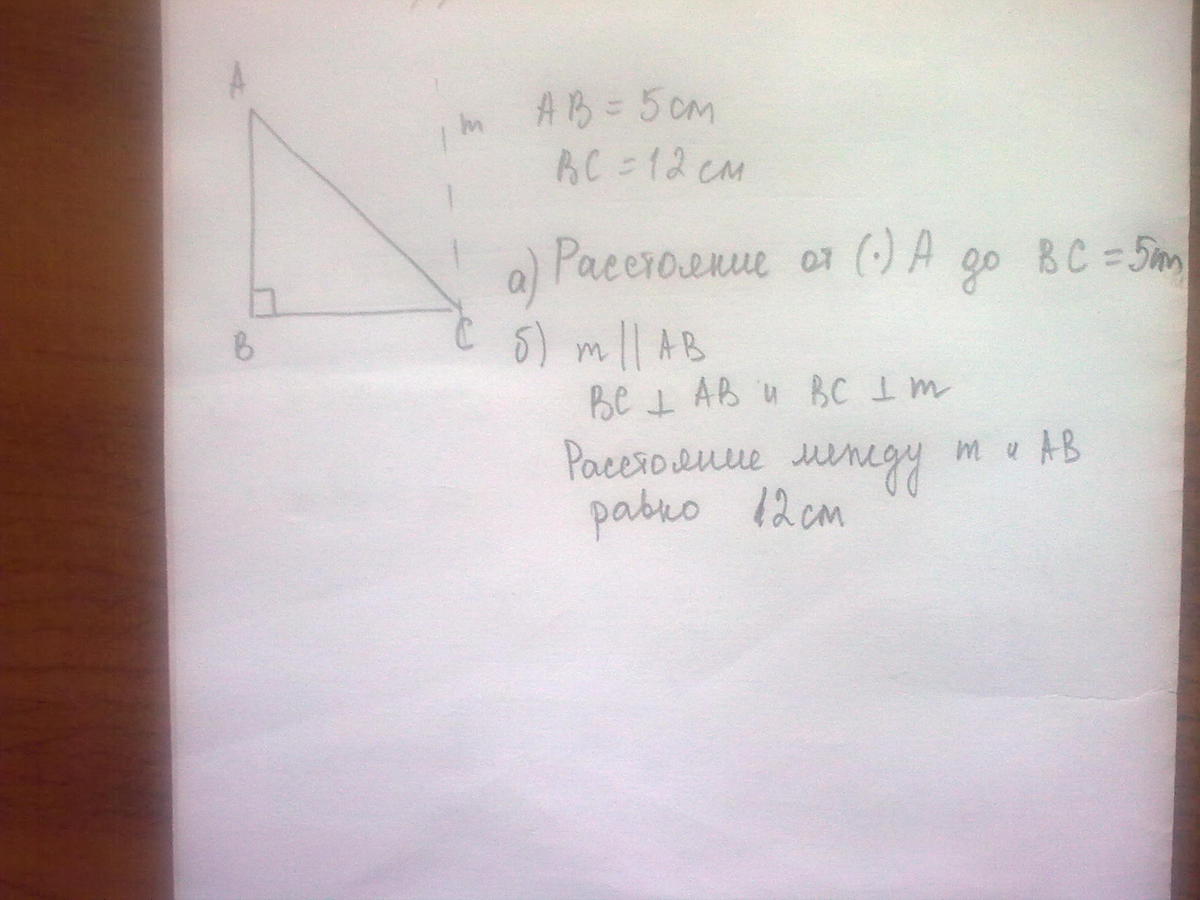 A
m
AB = 5 см
BC = 12 см
B
C
а) Расстояние от (·) A до BC = 5см
б) m || AB
BC ⊥ AB и BC ⊥ m
Расстояние между m и AB
равно 12 см